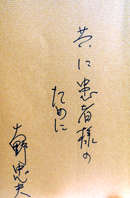 共に患者様の
ために
大野忠夫